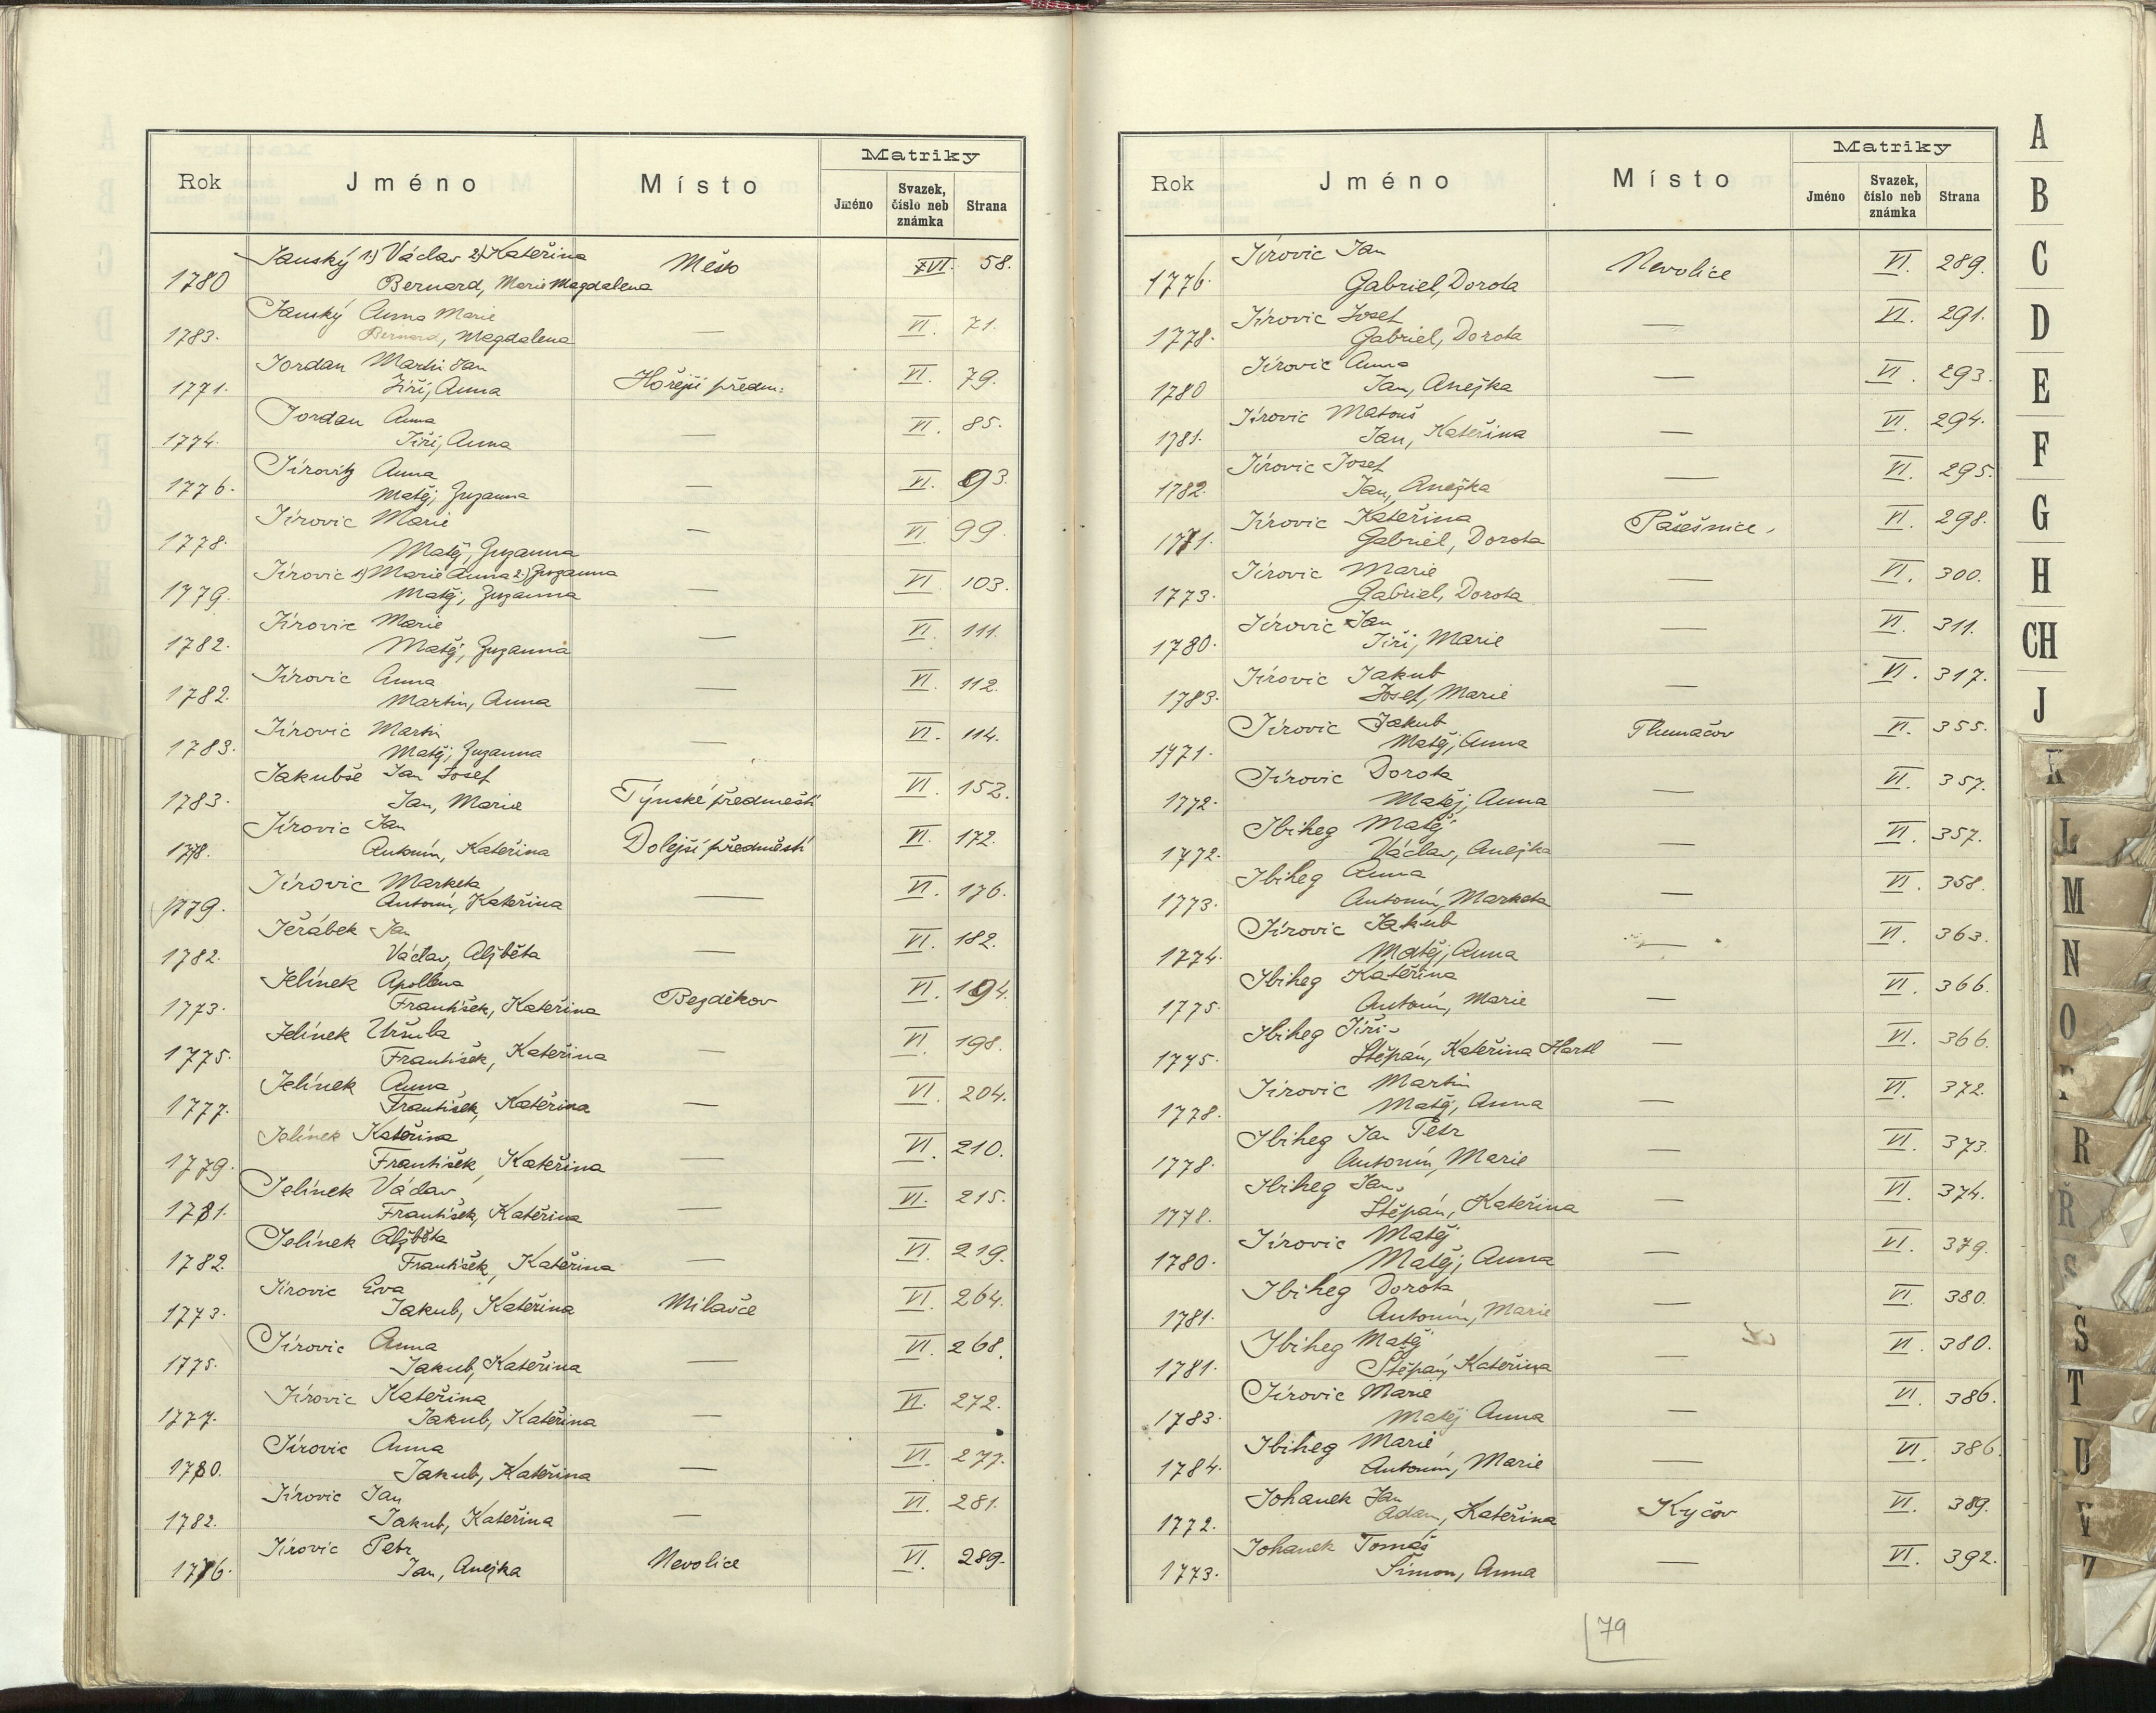 Rok Jméno Místo Matriky
Jméno Svazek, číslo neb známka Strana
Janský 1) Václav 2) Kateřina
1780 Bernard, Marie Magdalena Město XVI. 58.
Janský Anna Marie
1783. Bernard, Magdalena — VI. 71.
Jordan Martin Jan
1771. Jiří, Anna Hořejší předm: VI. 79.
Jordan Anna
1774. Jiří, Anna — VI. 85.
Jírovitz Anna
1776. Matěj, Zuzanna — VI. 93.
Jírovic Marie
1778. Matěj, Zuzanna — VI. 99.
Jírovic 1) Marie Anna 2) Zuzanna
1779. Matěj, Zuzanna — VI. 103.
Jírovic Marie
1782. Matěj, Zuzanna — VI. 111.
Jírovic Anna
1782. Martin, Anna — VI. 112.
Jírovic Martin
1783. Matěj, Zuzanna — VI. 114.
Jakubše Jan Josef
1783. Jan, Marie Týnské předměstí VI. 152.
Jírovic Jan
1778. Antonín, Kateřina Dolejší předměstí VI. 172.
Jírovic Marketa
1779. Antonín, Kateřina — VI. 176.
Jeřábek Jan
1782. Václav, Alžběta — VI. 182.
Jelínek Apollena
1773. František, Kateřina Bezděkov VI. 194.
Jelínek Uršula
1775. František, Kateřina — VI. 198.
Jelínek Anna
1777. František, Kateřina — VI. 204.
Jelínek Kateřina
1779. František, Kateřina — VI. 210.
Jelínek Václav
1781. František, Kateřina — VI. 215.
Jelínek Alžběta
1782. František, Kateřina — VI. 219.
Jírovic Eva
1773. Jakub, Kateřina Milavče VI. 264.
Jírovic Anna
1775. Jakub, Kateřina — VI. 268.
Jírovic Kateřina
1777. Jakub, Kateřina — VI. 272.
Jírovic Anna
1780. Jakub, Kateřina — VI. 277.
Jírovic Jan
1782. Jakub, Kateřina — VI. 281.
Jírovic Petr
1776. Jan, Anežka Nevolice VI. 289.
Rok Jméno Místo Matriky
Jméno Svazek, číslo neb známka Strana
Jírovic Jan
1776. Gabriel, Dorota Nevolice VI. 289.
Jírovic Josef
1778. Gabriel, Dorota — VI. 291.
Jírovic Anna
1780 Jan, Anežka — VI. 293.
Jírovic Matouš
1781. Jan, Kateřina — VI. 294.
Jírovic Josef
1782. Jan, Anežka — VI. 295.
Jírovic Kateřina
1771. Gabriel, Dorota Pasešnice, VI. 298.
Jírovic Marie
1773. Gabriel, Dorota — VI. 300.
Jírovic Jan
1780. Jiří, Marie — VI. 311.
Jírovic Jakub
1783. Josef, Marie — VI. 317.
Jírovic Jakub
1771. Matěj, Anna Tlumačov VI. 355.
Jírovic Dorota
1772. Matěj, Anna — VI. 357.
Ibiheg Matěj
1772. Václav, Anežka — VI. 357.
Ibiheg Anna
1773. Antonín, Marketa — VI. 358.
Jírovic Jakub
1774. Matěj, Anna — VI. 363.
Ibiheg Kateřina
1775. Antonín, Marie — VI. 366.
Ibiheg Jiří
1775. Štěpán, Kateřina Hartl — VI. 366.
Jírovic Martin
1778. Matěj, Anna — VI. 372.
Ibiheg Jan Petr
1778. Antonín, Marie — VI. 373.
Ibiheg Jan
1778. Štěpán, Kateřina — VI. 374.
Jírovic Matěj
1780. Matěj, Anna — VI. 379.
Ibiheg Dorota
1781. Antonín, Marie — VI. 380.
Ibiheg Matěj
1781. Štěpán, Kateřina — VI. 380.
Jírovic Marie
1783. Matěj Anna — VI. 386.
Ibiheg Marie
1784. Antonín, Marie — VI. 386.
Johanek Jan
1772. Adam, Kateřina Kyčov VI. 389.
Johanek Tomáš
1773. Šimon, Anna — VI. 392.
79
A
B
C
D
E
F
G
H
CH
J
K
L
M
N
O
R
Ř
S
Š
T
U
V